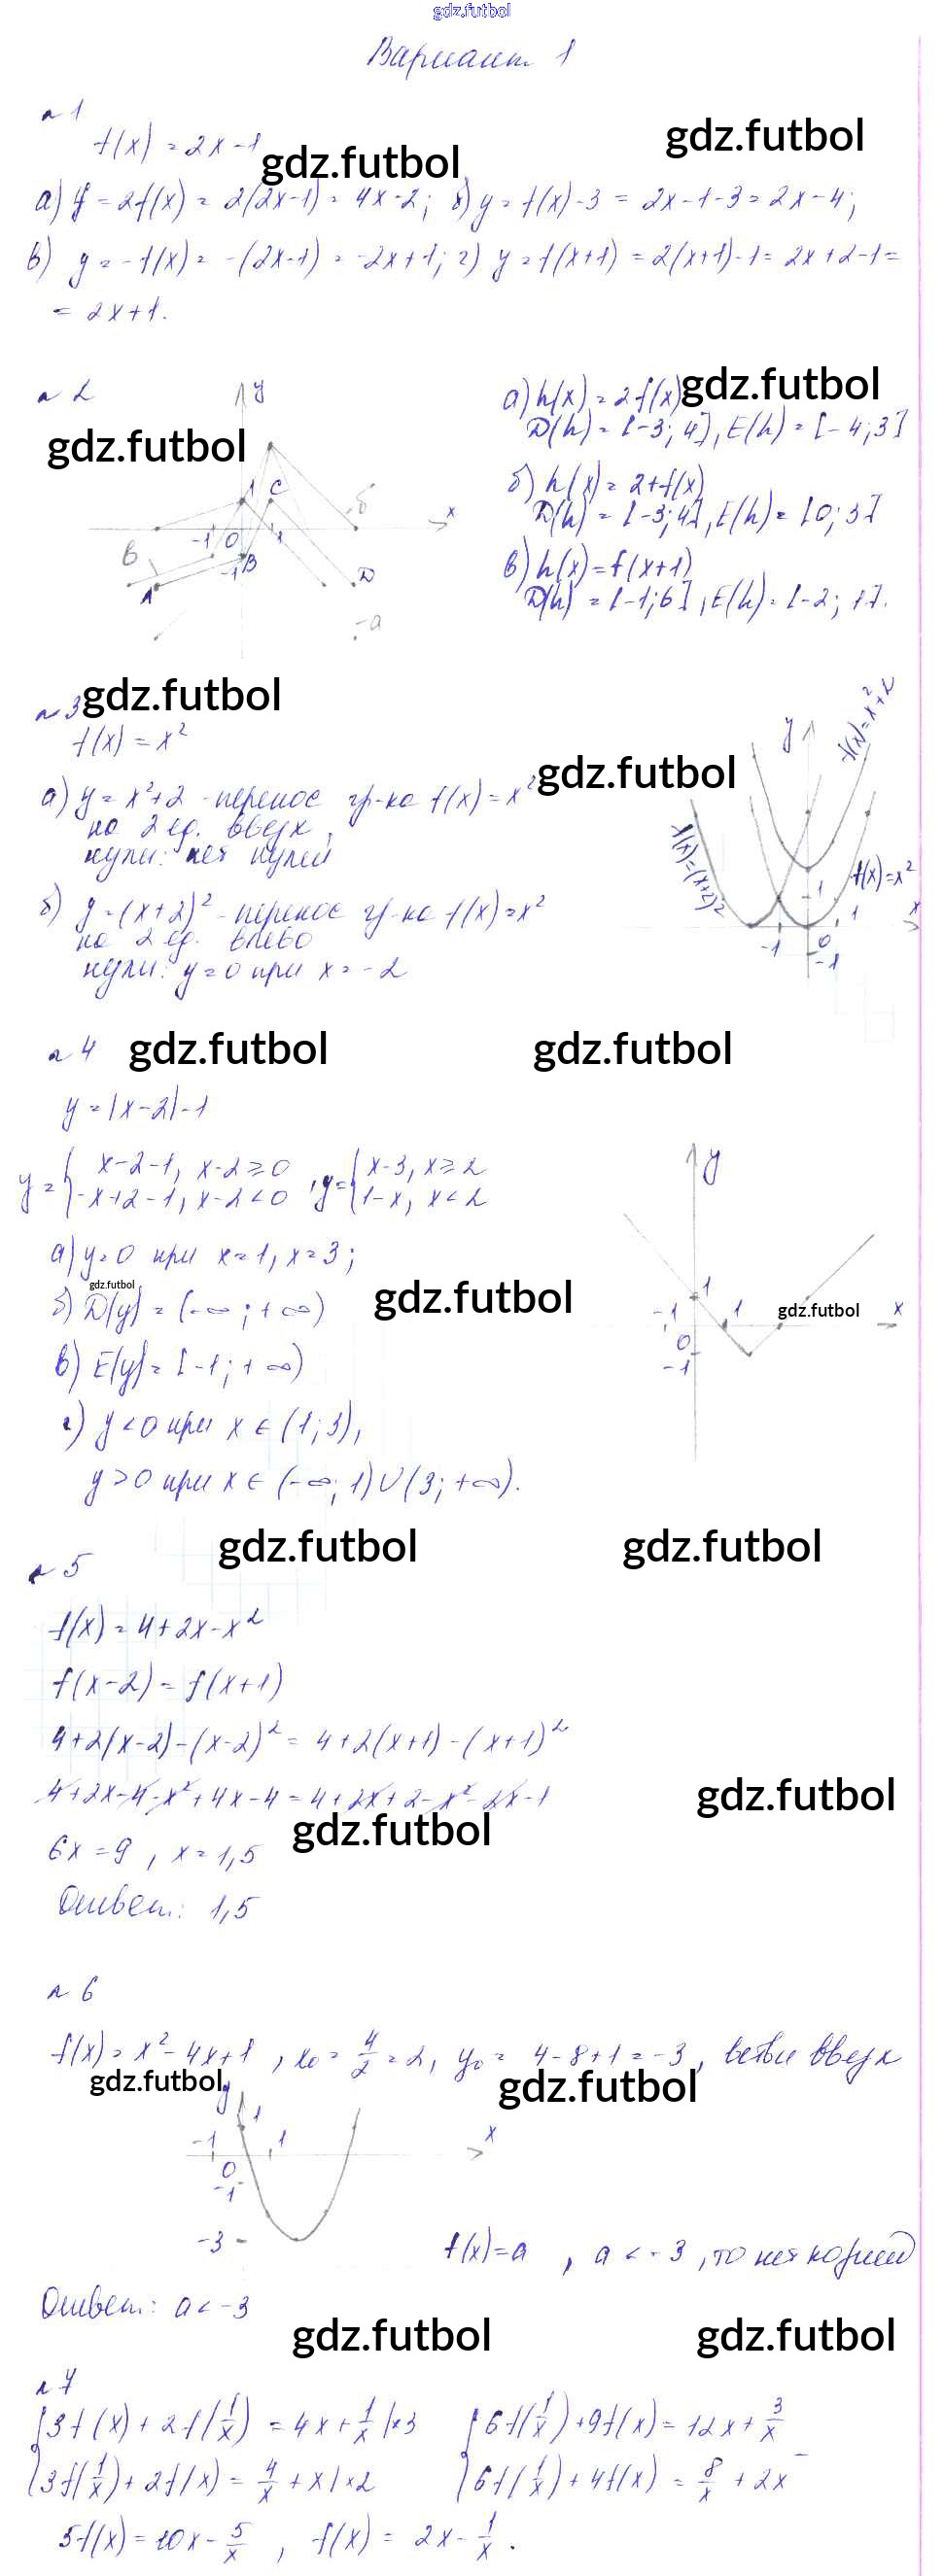 gdz.futbol
Вариант 1
№ 1
f(x) = 2x - 1
gdz.futbol
gdz.futbol
а) y = 2f(x) = 2(2x-1) = 4x-2; б) y = f(x)-3 = 2x-1-3 = 2x-4;
в) y = -f(x) = -(2x-1) = -2x+1; г) y = f(x+1) = 2(x+1)-1 = 2x+2-1 =
= 2x+1.
№ 2
gdz.futbol
y
1
C
б
x
-1
0
1
В
-1
B
A
D
а
а) h(x) = 2f(x)
gdz.futbol
D(h) = [-3; 4], E(h) = [-4; 3]
б) h(x) = 2+f(x)
D(h) = [-3; 4], E(h) = [0; 3]
в) h(x) = f(x+1)
D(h) = [-1; 6], E(h) = [-2; 1].
№ 3
gdz.futbol
f(x) = x²
gdz.futbol
а) y = x²+2 - перенос гр-ка f(x) = x²
на 2 ед. вверх,
нули: нет нулей
б) y = (x+2)² - перенос гр-ка f(x) = x²
на 2 ед. влево
нули: y = 0 при x = -2
y
f(x)=x²+2
f(x)=(x+2)²
f(x)=x²
1
x
-1
0
1
-1
№ 4
gdz.futbol
gdz.futbol
y = |x-2|-1
y = { x-2-1, x-2 ≥ 0 , y = { x-3, x ≥ 2
-x+2-1, x-2 < 0 1-x, x < 2
а) y = 0 при x = 1, x = 3;
gdz.futbol
б) D(y) = (-∞; +∞)
gdz.futbol
в) E(y) = [-1; +∞)
г) y < 0 при x ∈ (1; 3),
y > 0 при x ∈ (-∞; 1) ∪ (3; +∞).
y
1
-1
1
gdz.futbol
x
0
-1
gdz.futbol
gdz.futbol
№ 5
f(x) = 4+2x-x²
f(x-2) = f(x+1)
4+2(x-2)-(x-2)² = 4+2(x+1)-(x+1)²
4+2x-4-x²+4x-4 = 4+2x+2-x²-2x-1
gdz.futbol
gdz.futbol
6x = 9, x = 1,5
Ответ: 1,5
№ 6
f(x) = x²-4x+1, x₀ = 4/2 = 2, y₀ = 4-8+1 = -3, ветви вверх
gdz.futbol
gdz.futbol
y
1
-1
1
x
0
-1
-3
f(x)=a, a < -3, то нет корней
Ответ: a < -3
gdz.futbol
gdz.futbol
№ 7
{ 3f(x) + 2f(1/x) = 4x + 1/x |×3 { 6f(1/x) + 9f(x) = 12x + 3/x
3f(1/x) + 2f(x) = 4/x + x |×2 6f(1/x) + 4f(x) = 8/x + 2x -
5f(x) = 10x - 5/x, f(x) = 2x - 1/x.